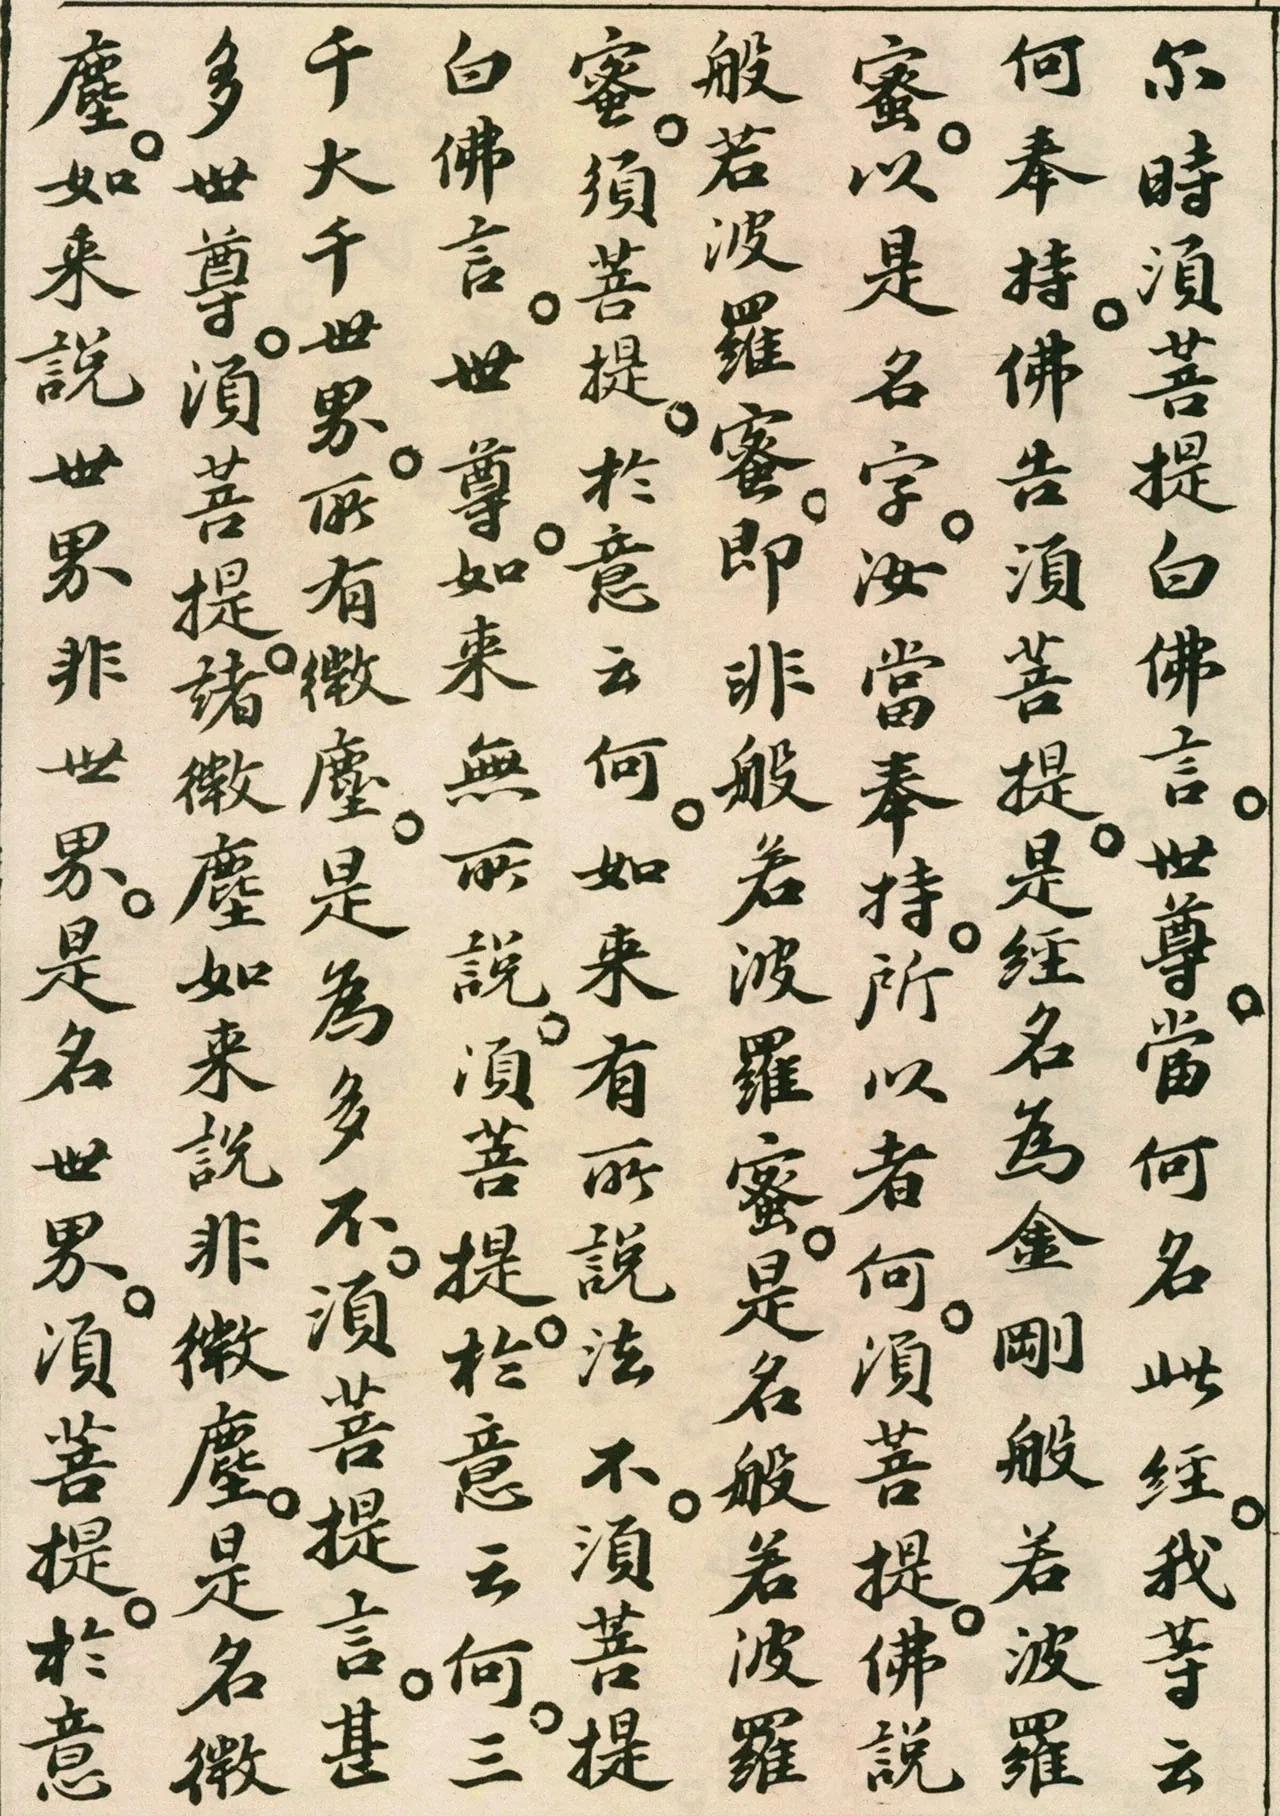 尔時須菩提白佛言。世尊。當何名此經。我等云
何奉持。佛告須菩提。是經名為金剛般若波羅
蜜。以是名字。汝當奉持。所以者何。須菩提。佛說
般若波羅蜜。即非般若波羅蜜。是名般若波羅
蜜。須菩提。於意云何。如来有所說法不。須菩提
白佛言。世尊。如来無所說。須菩提。於意云何。三
千大千世界。所有微塵。是為多不。須菩提言。甚
多世尊。須菩提。諸微塵如来說非微塵。是名微
塵。如来說世界非世界。是名世界。須菩提。於意